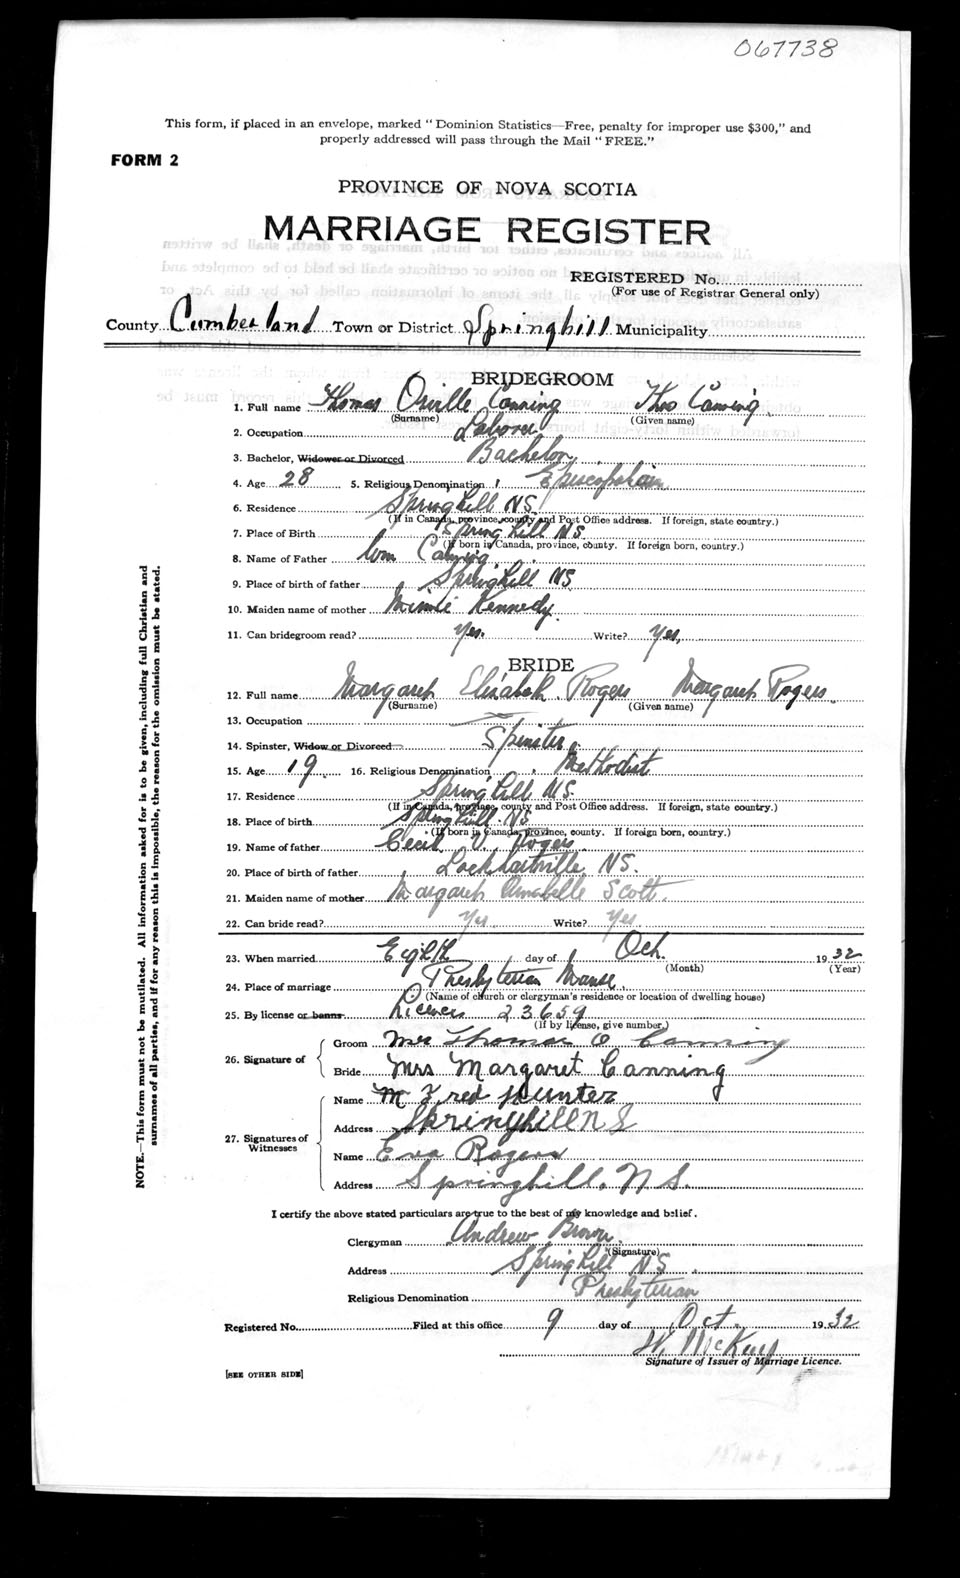 067738
This form, if placed in an envelope, marked " Dominion Statistics—Free, penalty for improper use $300," and
properly addressed will pass through the Mail " FREE."
FORM 2
PROVINCE OF NOVA SCOTIA
MARRIAGE REGISTER
REGISTERED No.
(For use of Registrar General only)
County Cumberland Town or District Springhill Municipality
BRIDEGROOM
1. Full name Thomas Orville Canning Thos Canning
(Surname) (Given name)
2. Occupation Labover
3. Bachelor, Widower or Divorced Bachelor
4. Age 28 5. Religious Denomination Episcopalian
6. Residence Springhill NS
(If in Canada, province, county and Post Office address. If foreign, state country.)
7. Place of Birth Spring hill NS
(If born in Canada, province, county. If foreign born, country.)
8. Name of Father Wm Canning
9. Place of birth of father Springhill NS
10. Maiden name of mother Minnie Kennedy
11. Can bridegroom read? Yes. Write? Yes,
BRIDE
12. Full name Margaret Elisabeth Rogers Margaret Rogers
(Surname) (Given name)
13. Occupation
14. Spinster, Widow or Divorced Spinster
15. Age 19 16. Religious Denomination Methodist
17. Residence Spring hill N.S.
(If in Canada, province, county and Post Office address. If foreign, state country.)
18. Place of birth Spring hill. NS
(If born in Canada, province, county. If foreign born, country.)
19. Name of father Cecil V. Rogers
20. Place of birth of father Lockhartville NS.
21. Maiden name of mother Margaret Annabelle Scott
22. Can bride read? Yes Write? Yes
23. When married Eighth day of Oct. 1932
(Month) (Year)
24. Place of marriage Presbyterian Manse
(Name of church or clergyman's residence or location of dwelling house)
25. By license or banns License 23659
(If by license, give number.)
26. Signature of
Groom Mr Thomas O Canning
Bride Mrs Margaret Canning
27. Signatures of Witnesses
Name M Fred Hunter
Address Springhill N S
Name Eva Rogers
Address Springhill, N S.
I certify the above stated particulars are true to the best of my knowledge and belief.
Clergyman Andrew Brown
(Signature)
Address Springhill NS
Religious Denomination Presbyterian
Registered No. Filed at this office 9 day of Oct. 1932
W. McKay
Signature of Issuer of Marriage Licence.
[SEE OTHER SIDE]
NOTE.—This form must not be mutilated. All information asked for is to be given, including full Christian and
surnames of all parties, and if for any reason this is impossible, the reason for the omission must be stated.